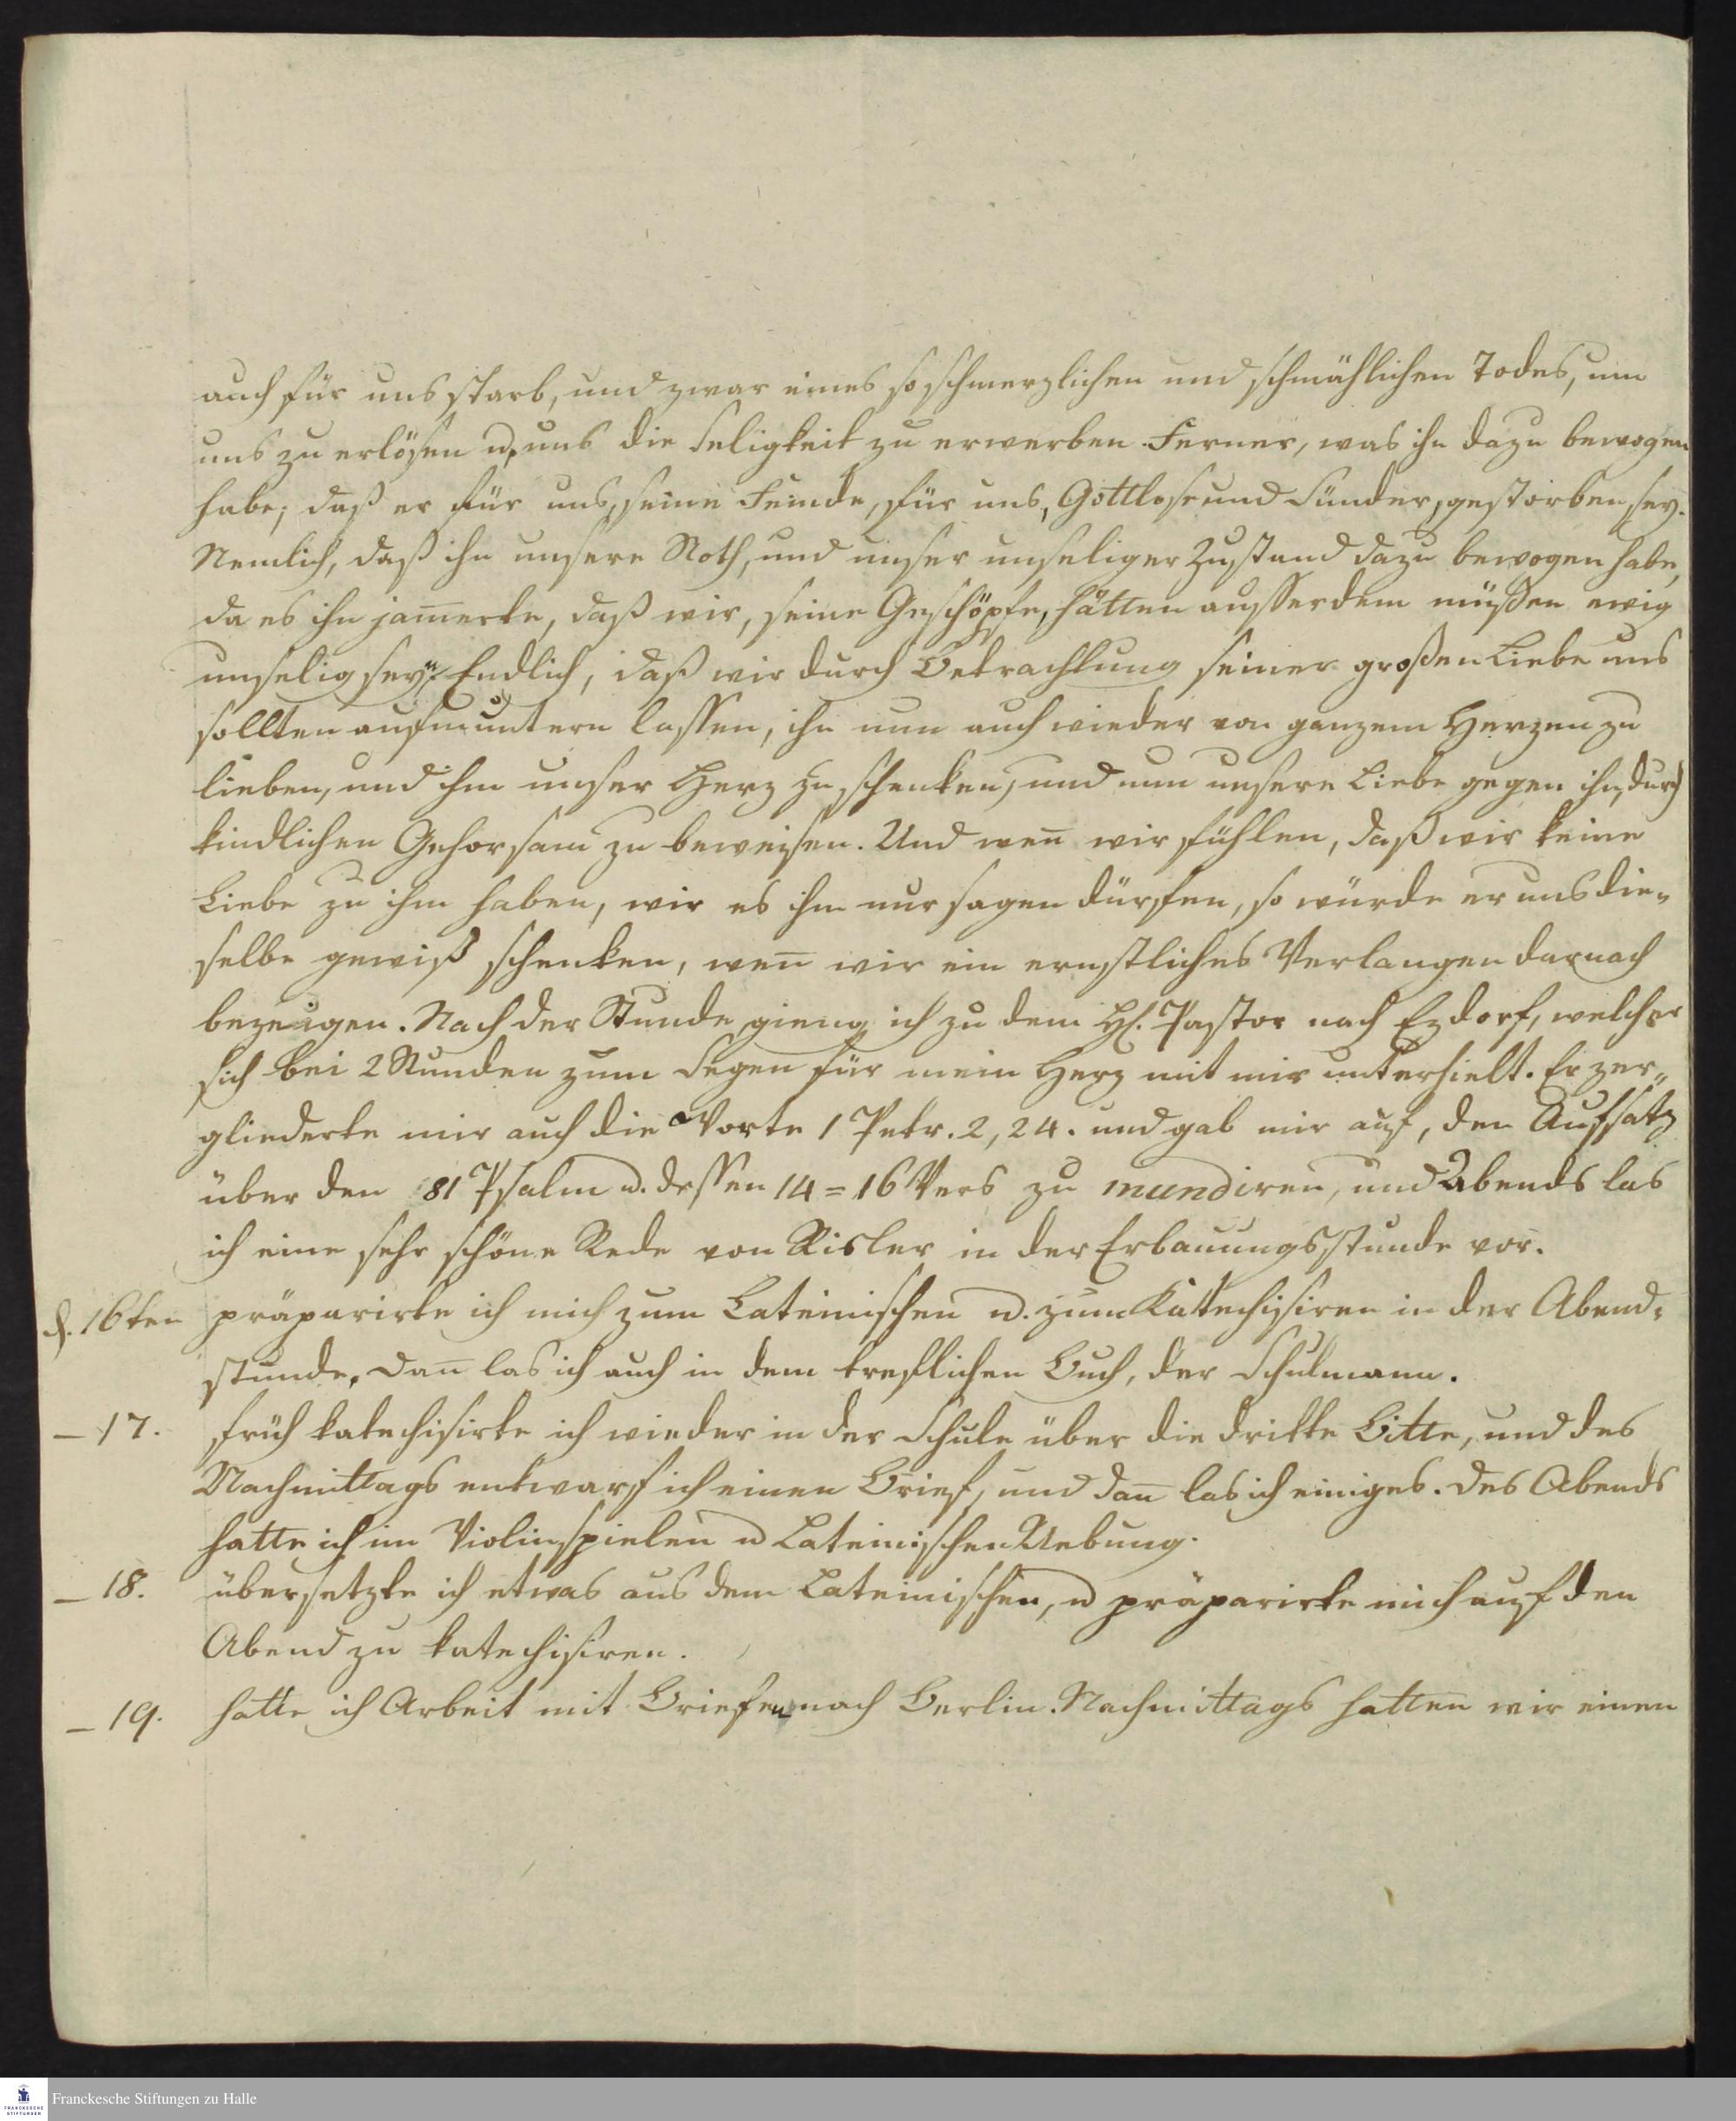 auch für uns starb, und zwar eines so schmerzlichen und schmählichen Todes, um
uns zu erlösen u. uns die Seligkeit zu erwerben. Ferner, was ihn dazu bewogen
habe, daß er für uns, seine Feinde, für uns, Gottlose und Sünder, gestorben sey.
Nemlich, daß ihn unsere Noth, und unser unseliger Zustand dazu bewogen habe,
da es ihn jam̅erte, daß wir, seine Geschöpfe, hätten ausserdem müßen ewig
unselig seyn. Endlich, daß wir durch Betrachtung seiner großen Liebe uns
sollten aufmuntern lassen, ihn nun auch wieder von ganzem Herzen zu
lieben, und ihm unser Herz zu schenken, und nun unsere Liebe gegen ihn, durch
kindlichen Gehorsam zu beweisen. Und wen̅ wir fühlen, daß wir keine
Liebe zu ihm haben, wir es ihm nur sagen dürfen, so würde er uns die-
selbe gewiß schenken, wen̅ wir ein ernstliches Verlangen darnach
bezeugen. Nach der Stunde gieng ich zu dem H. Pastor nach Ezdorf, welcher
sich bei 2 Stunden zum Segen für mein Herz mit mir unterhielt. Er zer„
gliederte mir auch die Worte 1 Petr. 2, 24. und gab mir auf, den Aufsatz
über den 81 Psalm u. dessen 14=16 Vers zu mundiren, und Abends las
ich eine sehr schöne Rede von Risler in der Erbauungsstunde vor.
d. 16ten präparirte ich mich zum Lateinischen u. zum Katechisiren in der Abend-
stunde. Dan̅ las ich auch in dem treflichen Buch, der Schulmann.
— 17. früh katechisirte ich wieder in der Schule über die dritte Bitte, und des
Nachmittags entwarf ich einen Brief, und dan̅ las ich einiges. Des Abends
hatte ich im Violinspielen u Lateinischen Uebung.
— 18. übersetzte ich etwas aus dem Lateinischen, u präparirte mich auf den
Abend zu katechisiren.
— 19. hatte ich Arbeit mit Briefen nach Berlin. Nachmittags hatten wir einen
Franckesche Stiftungen zu Halle
FRANCKESCHE
STIFTUNGEN